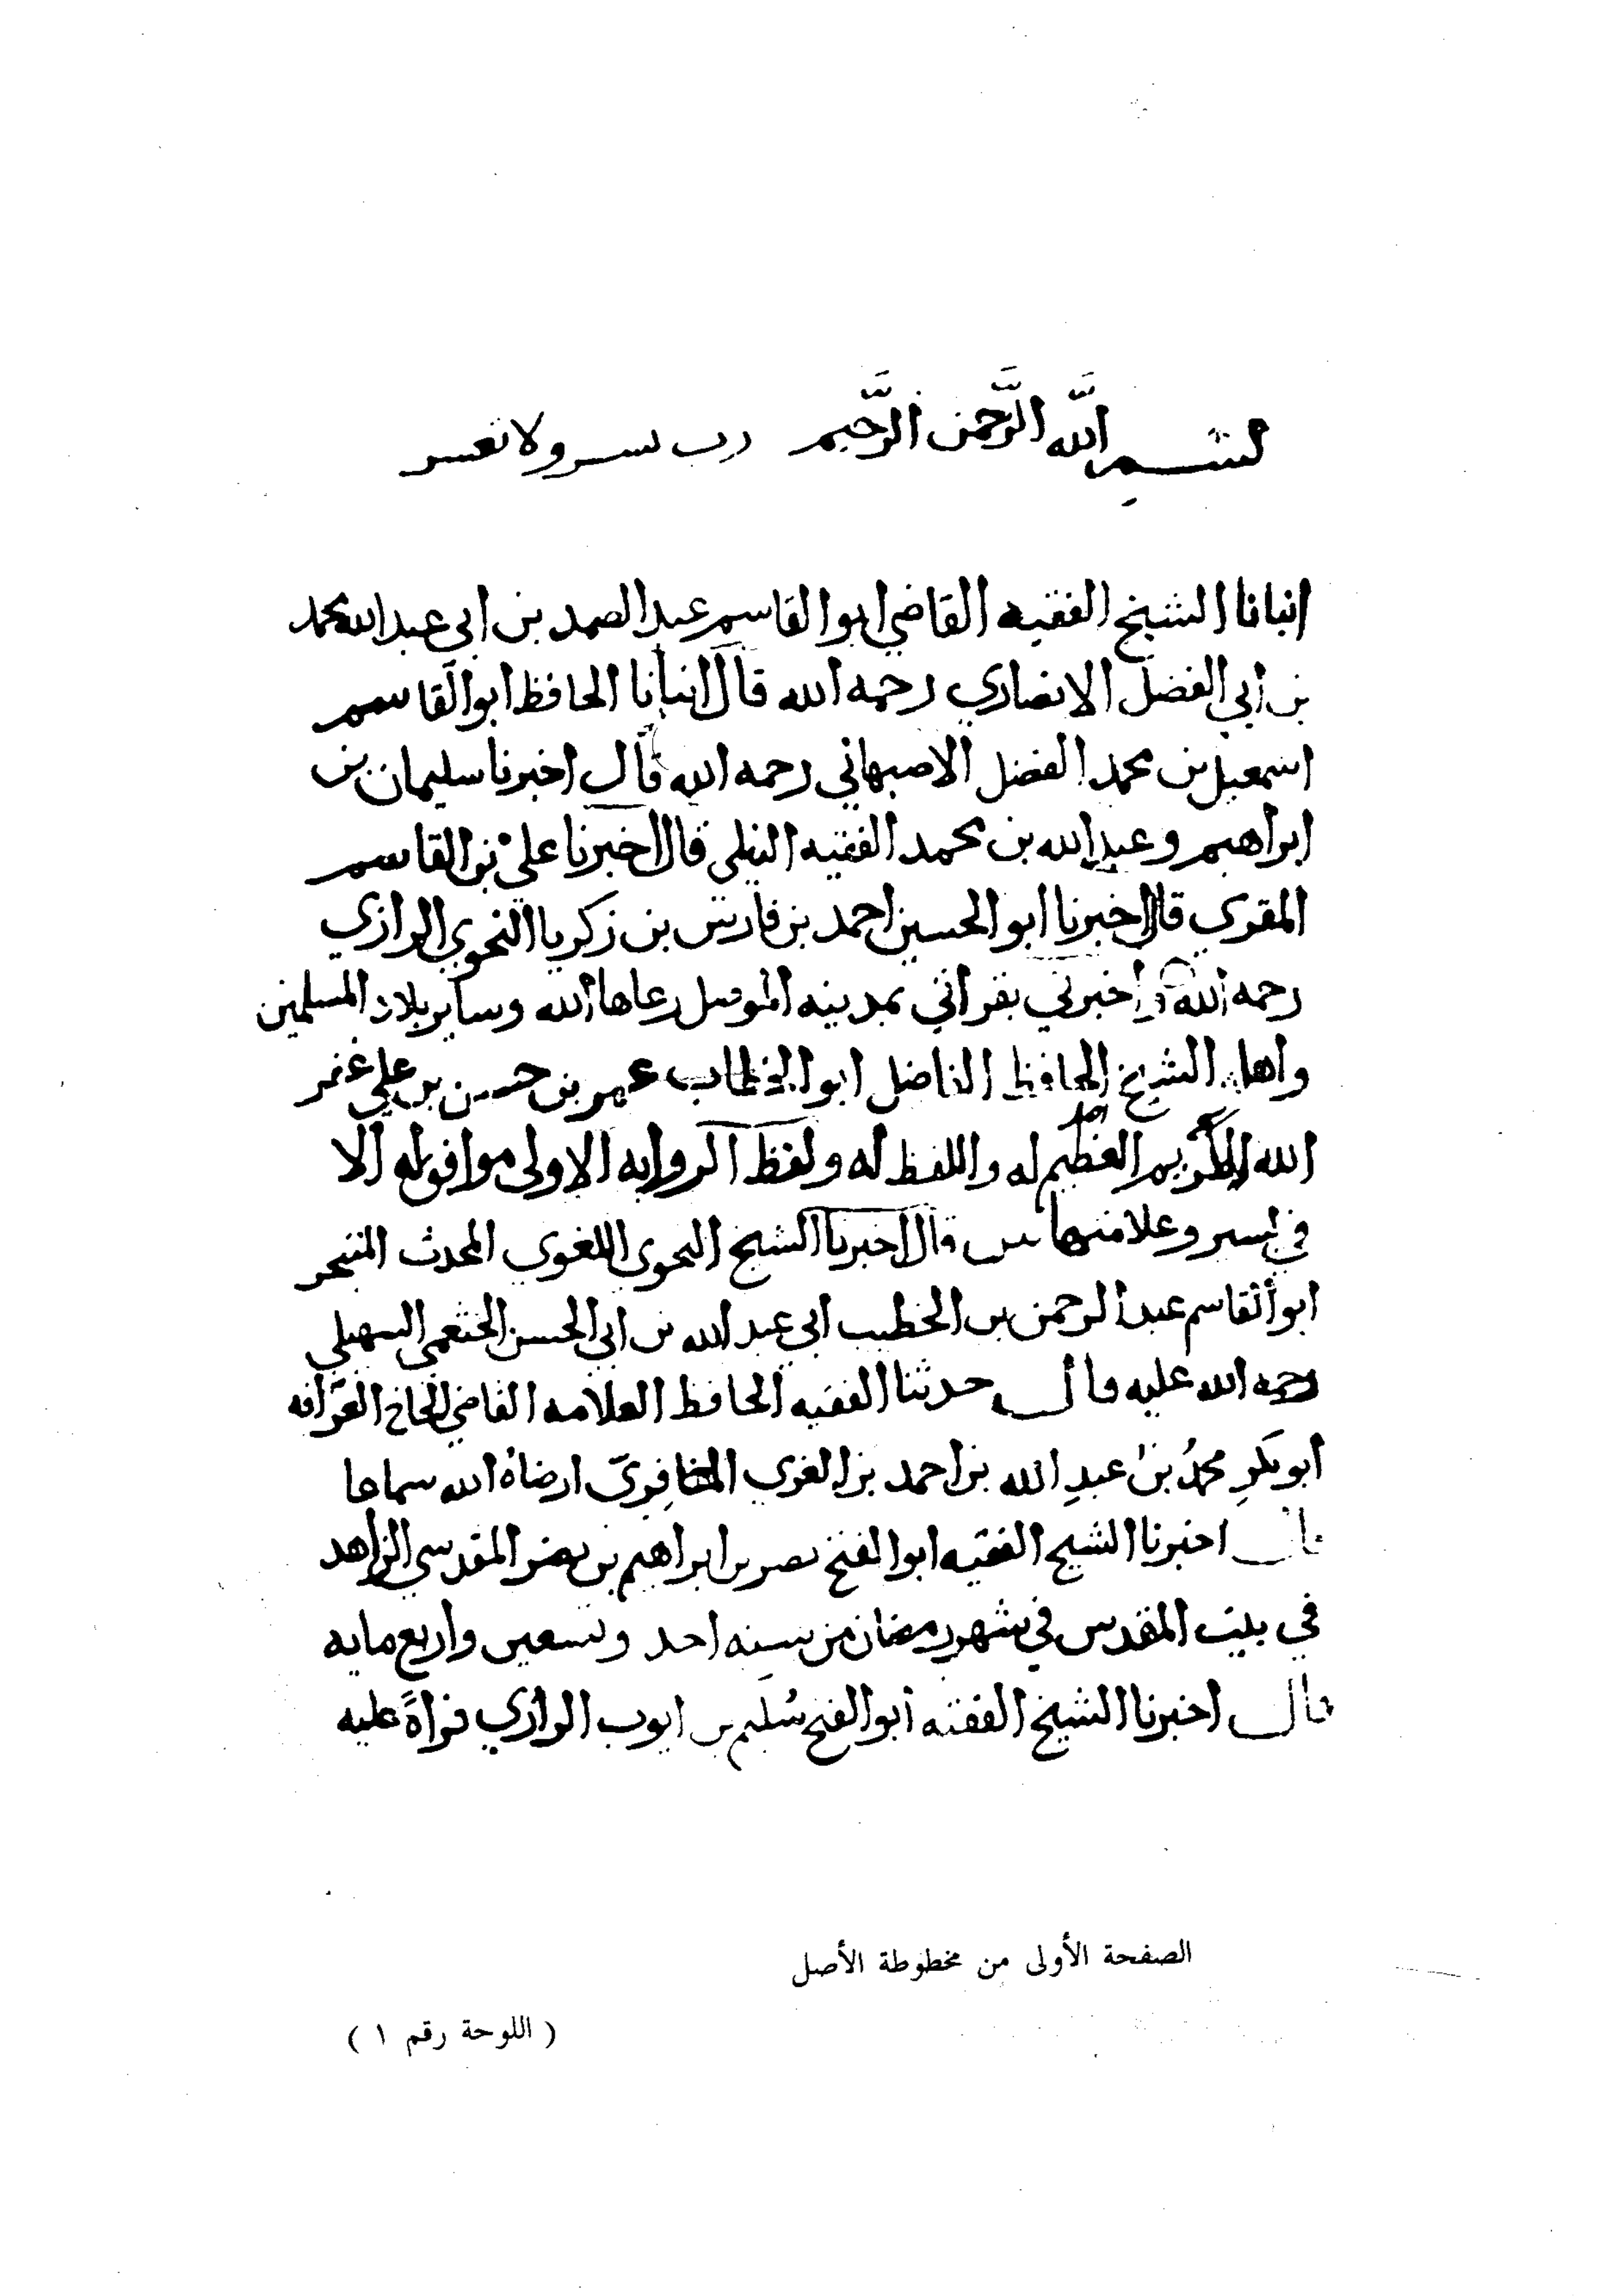 بسم اللَّه الرَّحمن الرَّحيم رب يسر ولا تعسر
انبانا الشيخ الفقيه القاضي ابو القاسم عبد الصمد بن ابي عبد الله محمد
بن ابي الفضل الانصاري رحمه الله قال انبانا الحافظ ابو القاسم
اسمعيل بن محمد الفضل الاصبهاني رحمه الله قال اخبرنا سليمان بن
ابراهيم وعبد الله بن محمد الفقيه النيلي قال اخبرنا علي بن القاسم
المقري قال اخبرنا ابو الحسين احمد بن فارس بن زكريا النحوي الرازي
رحمه الله و اخبرني بقراتي بمدينه الموصل رعاها الله وساير بلاد المسلمين
واهله الشيخ الحافظ الفاضل ابو الخطاب عمر بن حسن بن علي غفر
الله الكريم العظيم له واللفظ له ولفظ الروايه الاولى موافق له الا
في يسير وعلامتها س قال اخبرنا الشيخ النحوي اللغوي المحدث المتبحر
ابو القاسم عبد الرحمن بن الخطيب ابي عبد الله بن ابي الحسن الخثعمي السهيلي
رحمه الله عليه قال حدثنا الفقيه الحافظ العلامه القاضي
ابو بكرِ محمدُ بن عبدِ الله بن احمد بن العربي المعافِريّ ارضاهُ الله سماعا
قال اخبرنا الشيخ الفقيه ابو الفتح نصر بن ابراهيم بن نصر المقدسي الزاهد
في بيت المقدس في شهر رمضان من سنه احد وتسعين واربع مايه
قال اخبرنا الشيخ الفقيه ابو الفتح سُليم بن ايوب الرازي قراةً عليه
الصفحة الأولى من مخطوطة الأصل
( اللوحة رقم ١ )